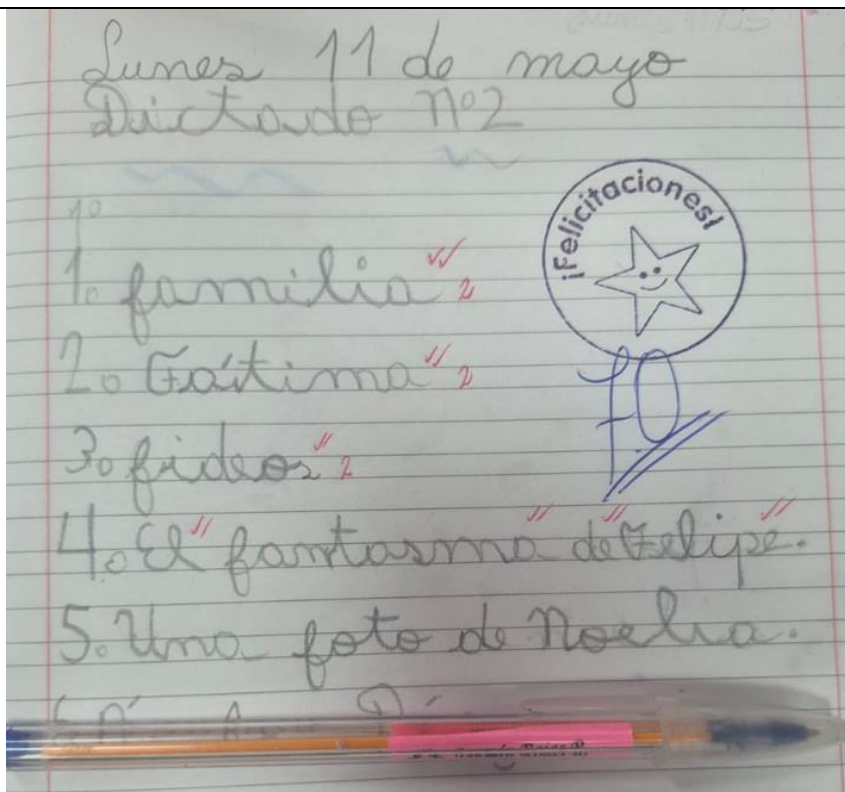 Lunes 11 de mayo
Dictado Nº2
1º
¡Felicitaciones!
1. familia 2
2. Fátima 2
70
3. fideos 2
4. El fantasma de Felipe.
5. Una foto de Noelia.